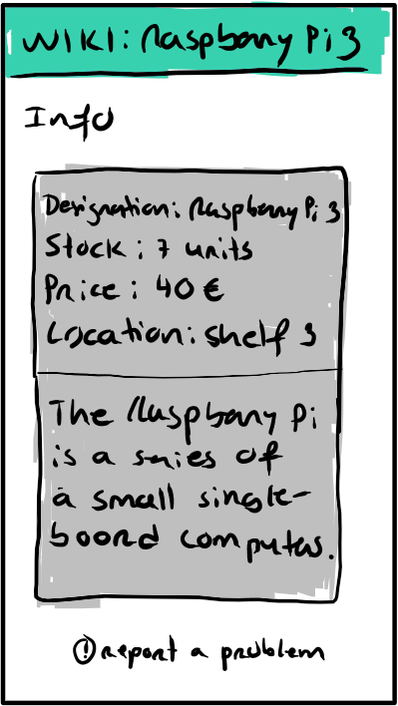 WIKI: Raspberry Pi 3
Info
Designation: Raspberry Pi 3
Stock: 7 units
Price: 40 €
Location: shelf 3
The Raspberry Pi
is a series of
a small single-
board computers.
! report a problem